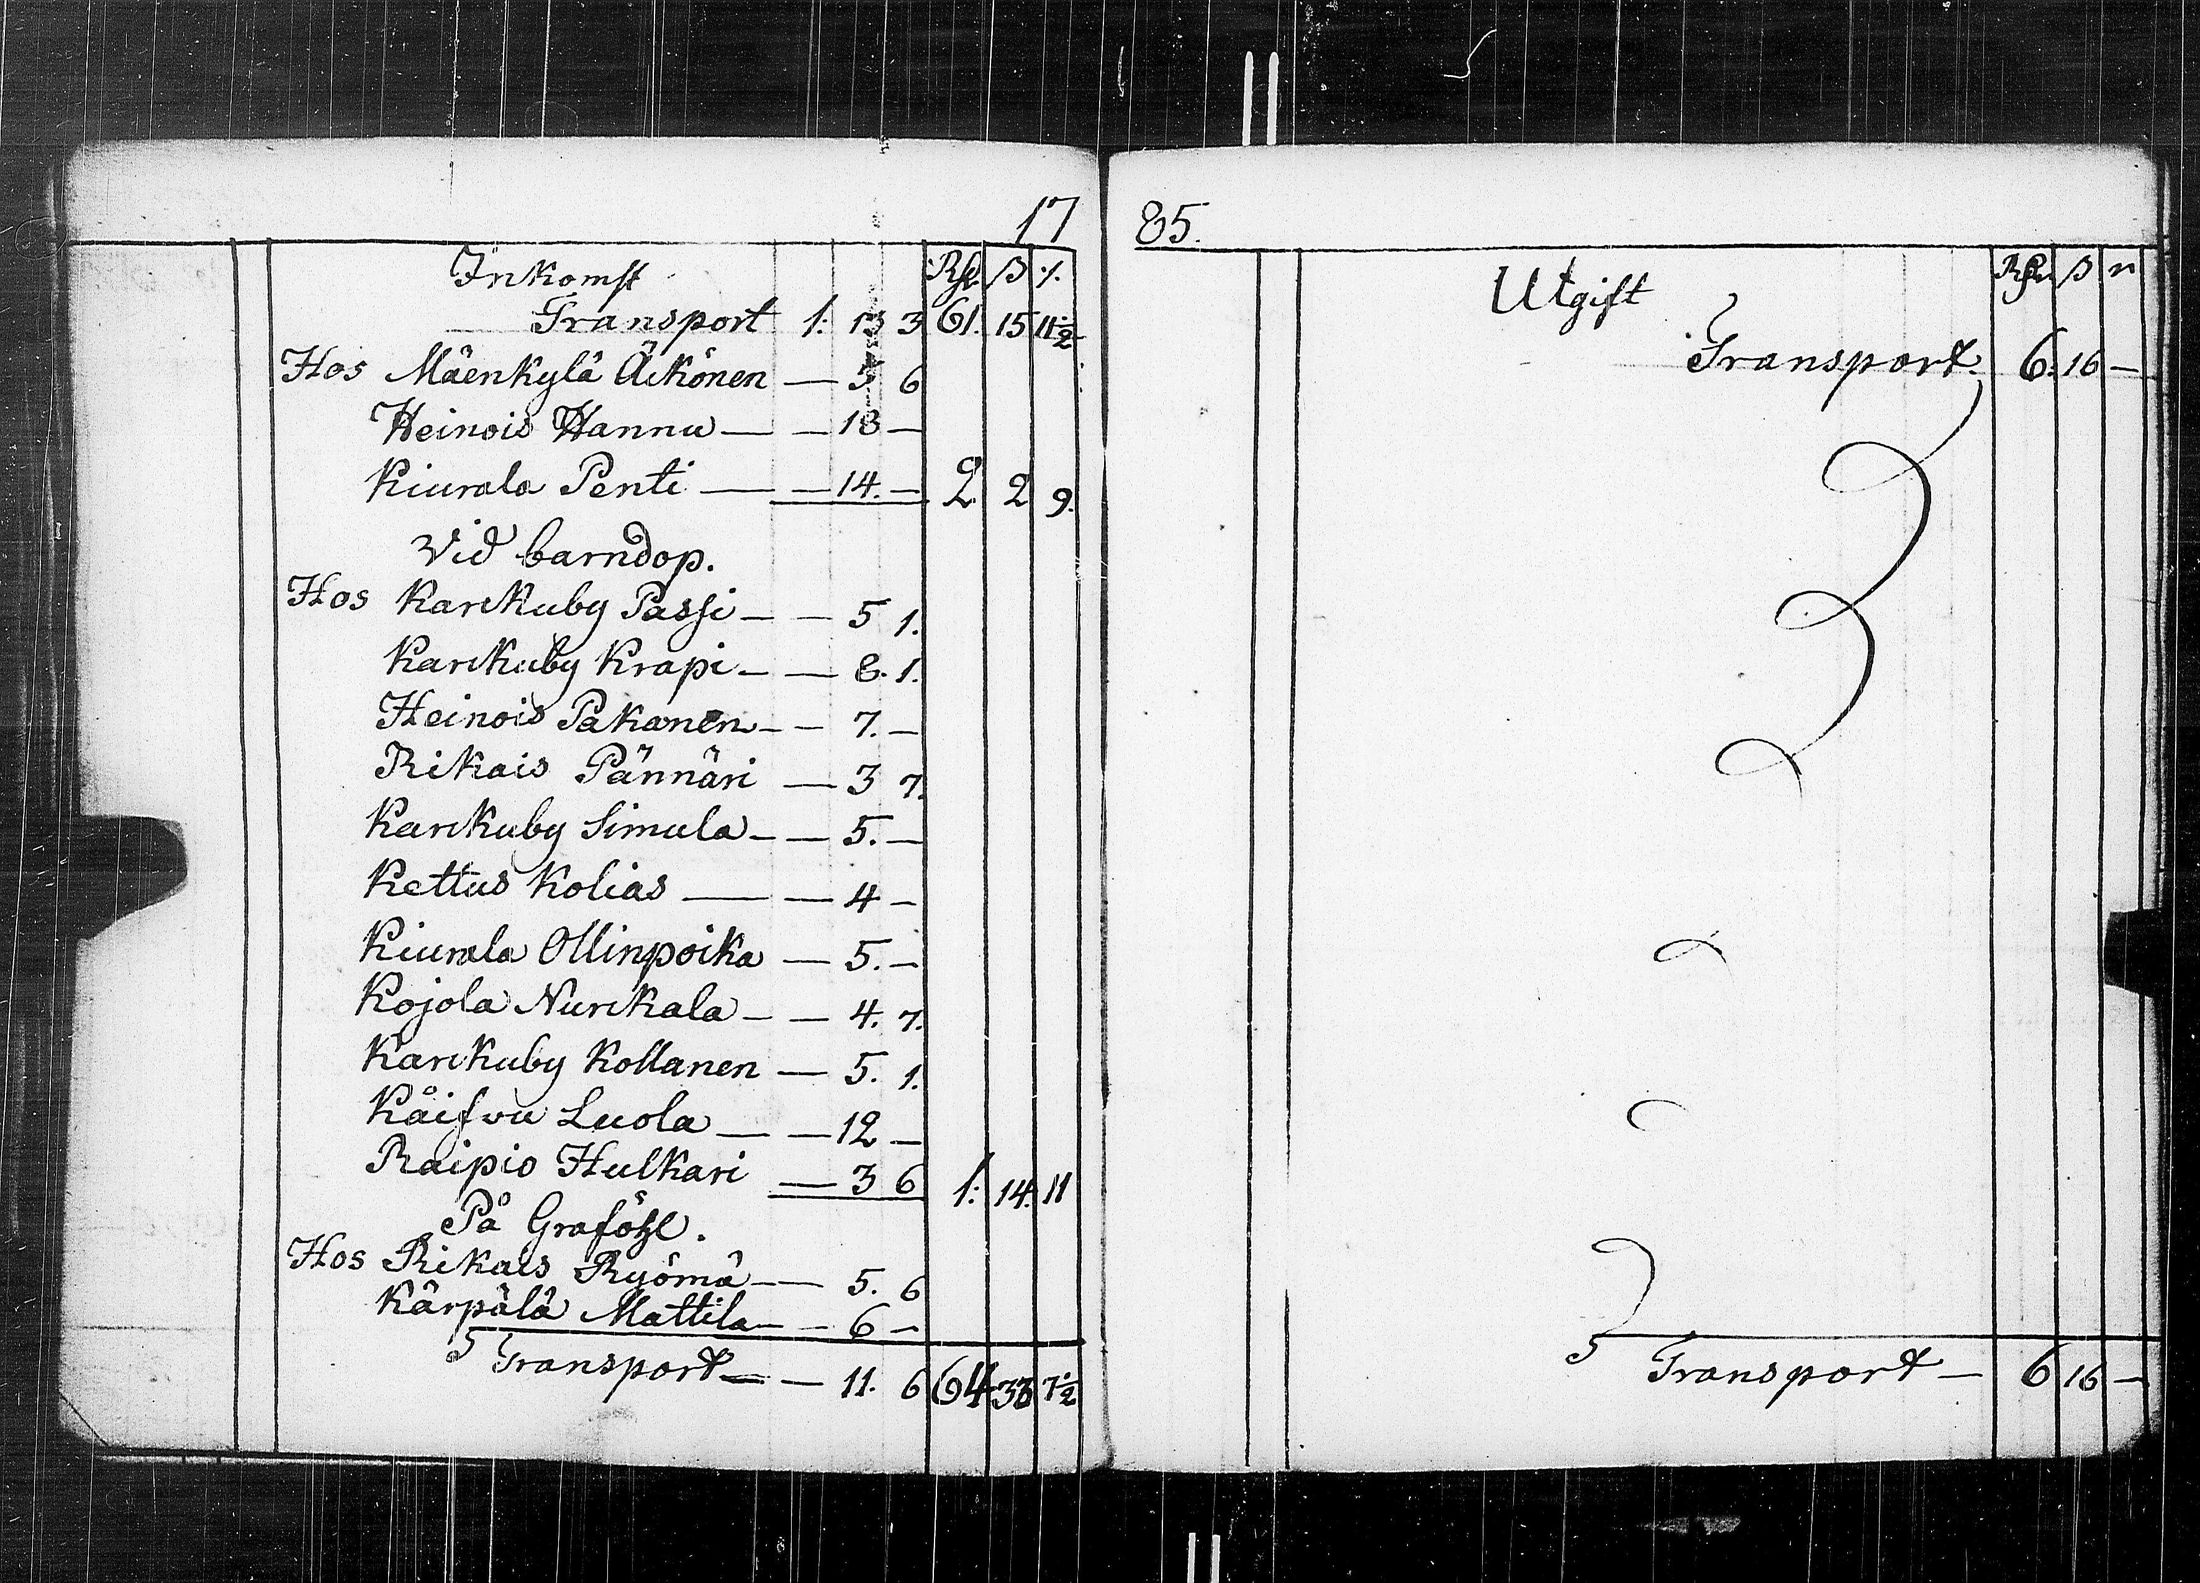 17
Inkomst Rdr ß ₰.
Transport 1: 13 3 61. 15 11½
Hos Mäenkylä Äikönen — 5 6
Heinois Hannu — — 18 —
Kiurala Penti — — 14. — 2. 2 9.
Vid barndop.
Hos Karckuby Passi — — 5 1.
Karckuby Krapi — — 8. 1.
Heinois Pakanen — — 7. —
Rikais Pännäri — 3 7.
Karckuby Simula — — 5. —
Kettus Kolias — — 4 —
Kiurala Ollinpoika — 5. —
Kojola Nurckala — — 4. 7.
Karckuby Kollanen — 5. 1.
Käifvu Luola — — 12 —
Raipio Hulkari — 3 6 1: 14. 11
På Graföhl.
Hos Rikais Ryömä — — 5. 6
Kärpälä Mattila — — 6 —
Transport — — 11. 6 64 33 7½
85.
Utgift Rdr ß
Transport. 6: 16 —
Transport — 6 16 —